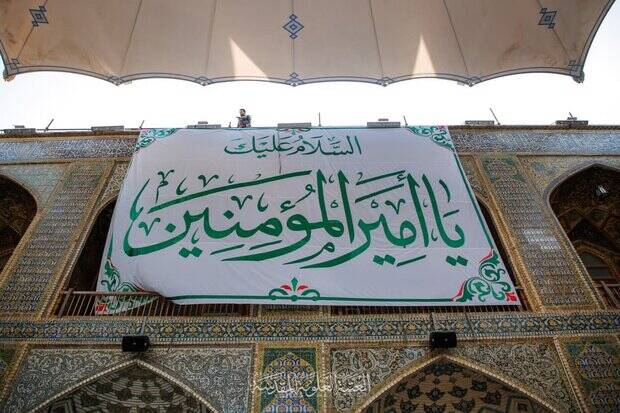 السلام عليك
يا أمير المؤمنين
العتبة العلوية المقدسة